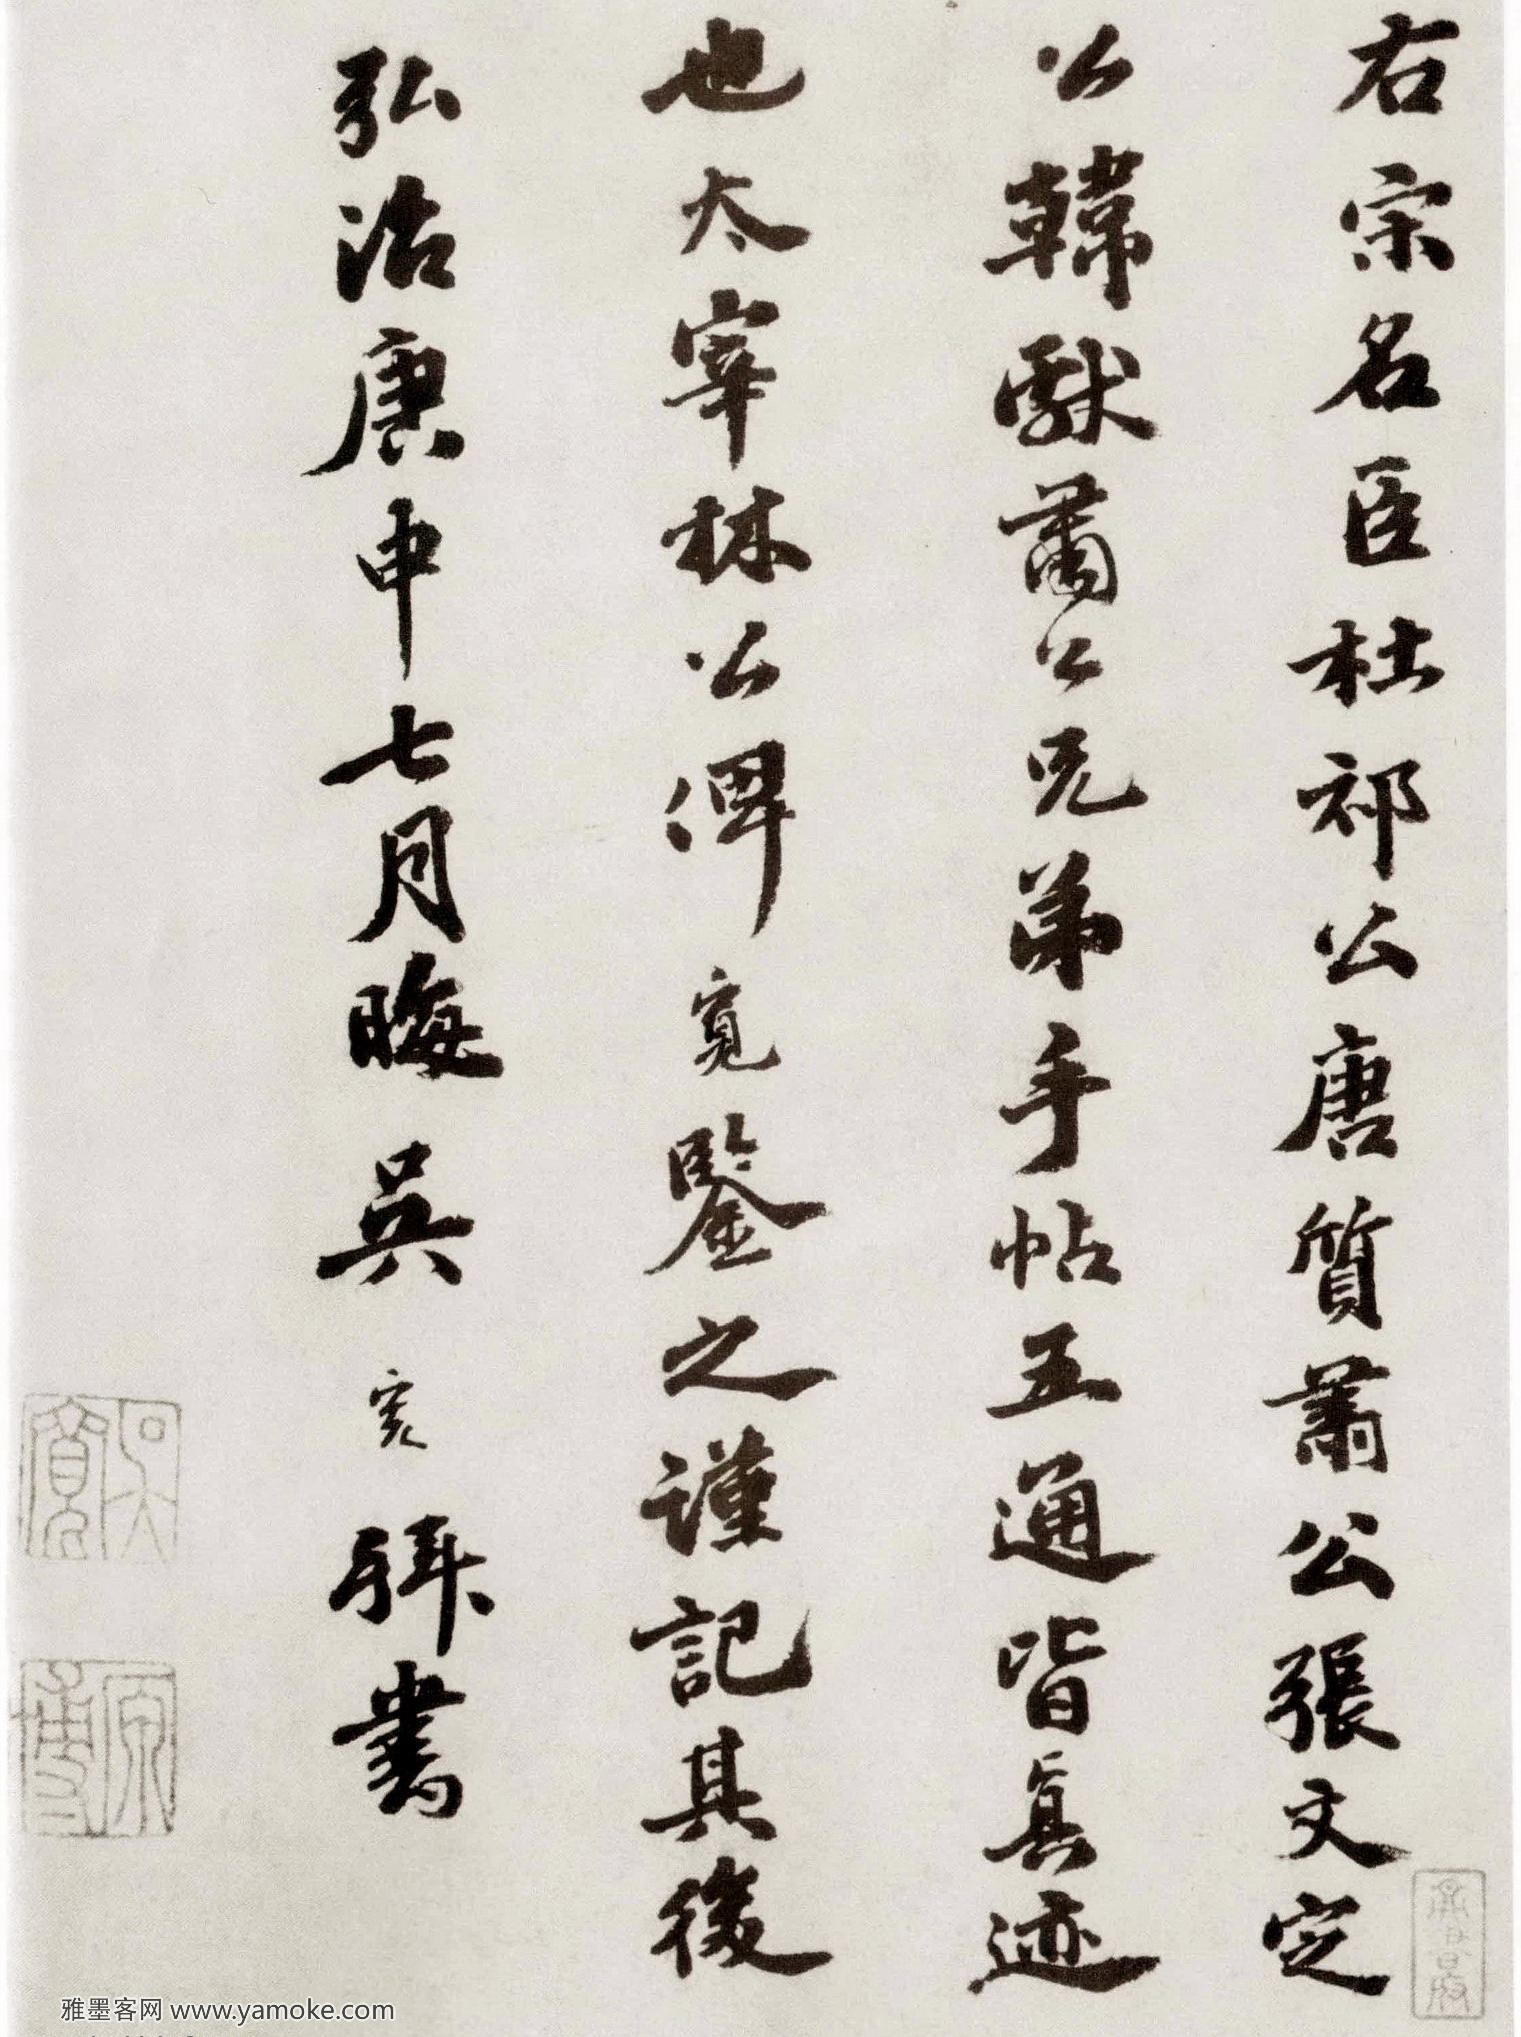 右宋名臣杜祁公唐質肅公張文定
公韓獻肅公兄弟手帖五通皆真迹
也太宰林公俾寬鑒之謹記其後
弘治庚申七月晦吳寬拜書
吳寬
原博
雅墨客网 www.yamoke.com